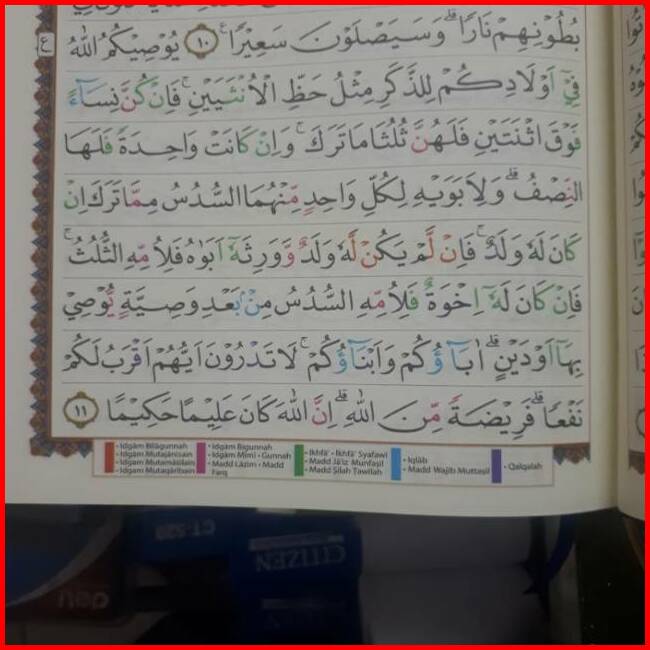 بُطُوْنِهِمْ نَارًاۗ وَسَيَصْلَوْنَ سَعِيْرًا ࣖ ١٠ يُوْصِيْكُمُ اللّٰهُ
فِيْٓ اَوْلَادِكُمْ لِلذَّكَرِ مِثْلُ حَظِّ الْاُنْثَيَيْنِ ۚ فَاِنْ كُنَّ نِسَاۤءً
فَوْقَ اثْنَتَيْنِ فَلَهُنَّ ثُلُثَا مَا تَرَكَ ۚ وَاِنْ كَانَتْ وَاحِدَةً فَلَهَا
النِّصْفُ ۗ وَلِاَبَوَيْهِ لِكُلِّ وَاحِدٍ مِّنْهُمَا السُّدُسُ مِمَّا تَرَكَ اِنْ
كَانَ لَهٗ وَلَدٌ ۚ فَاِنْ لَّمْ يَكُنْ لَّهٗ وَلَدٌ وَّوَرِثَهٗٓ اَبَوٰهُ فَلِاُمِّهِ الثُّلُثُ ۚ
فَاِنْ كَانَ لَهٗٓ اِخْوَةٌ فَلِاُمِّهِ السُّدُسُ مِنْۢ بَعْدِ وَصِيَّةٍ يُّوْصِيْ
بِهَآ اَوْ دَيْنٍ ۗ اٰبَاۤؤُكُمْ وَاَبْنَاۤؤُكُمْۚ لَا تَدْرُوْنَ اَيُّهُمْ اَقْرَبُ لَكُمْ
نَفْعًاۗ فَرِيْضَةً مِّنَ اللّٰهِ ۗ اِنَّ اللّٰهَ كَانَ عَلِيْمًا حَكِيْمًا ١١
ع
• Idgām Bilāgunnah
• Idgām Mutajānisain
• Idgām Mutamāṡilain
• Idgām Mutaqāribain
• Idgām Bigunnah
• Idgām Mīmī • Gunnah
• Madd Lāzim • Madd Farq
• Ikhfā' • Ikhfā' Syafawī
• Madd Jā'iz Munfaṣil
• Madd Ṣilah Ṭawīlah
• Iqlāb
• Madd Wājib Muttaṣil
• Qalqalah
CT-520
CITIZEN
deli